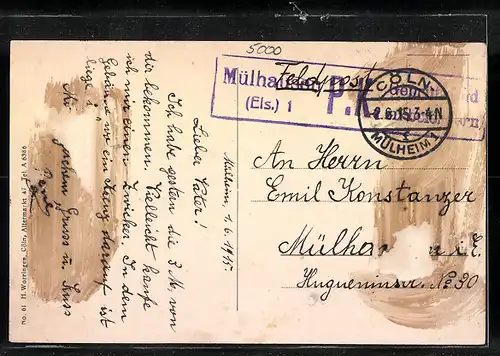 5000
Feldpost
Mülhausen P.K.
(Els.) 1
CÖLN-
2.6.15.3-4N
MÜLHEIM
An Herrn
Emil Konstanzer
Mülhausen i. E.
Hugueninstr. No 30
Mülheim, 1.6.1915
Lieber Vater!
Ich habe gestern die 3 M. von
dir bekommen. Vielleicht kaufe
ich mir einen Zwicker. In dem
Gebäude wo ein Kreuz darauf ist
liege ich.
Mit Gruss u. Kuss
No. 61 H. Worringen, Cöln, Altermarkt 47. Tel. A 6386